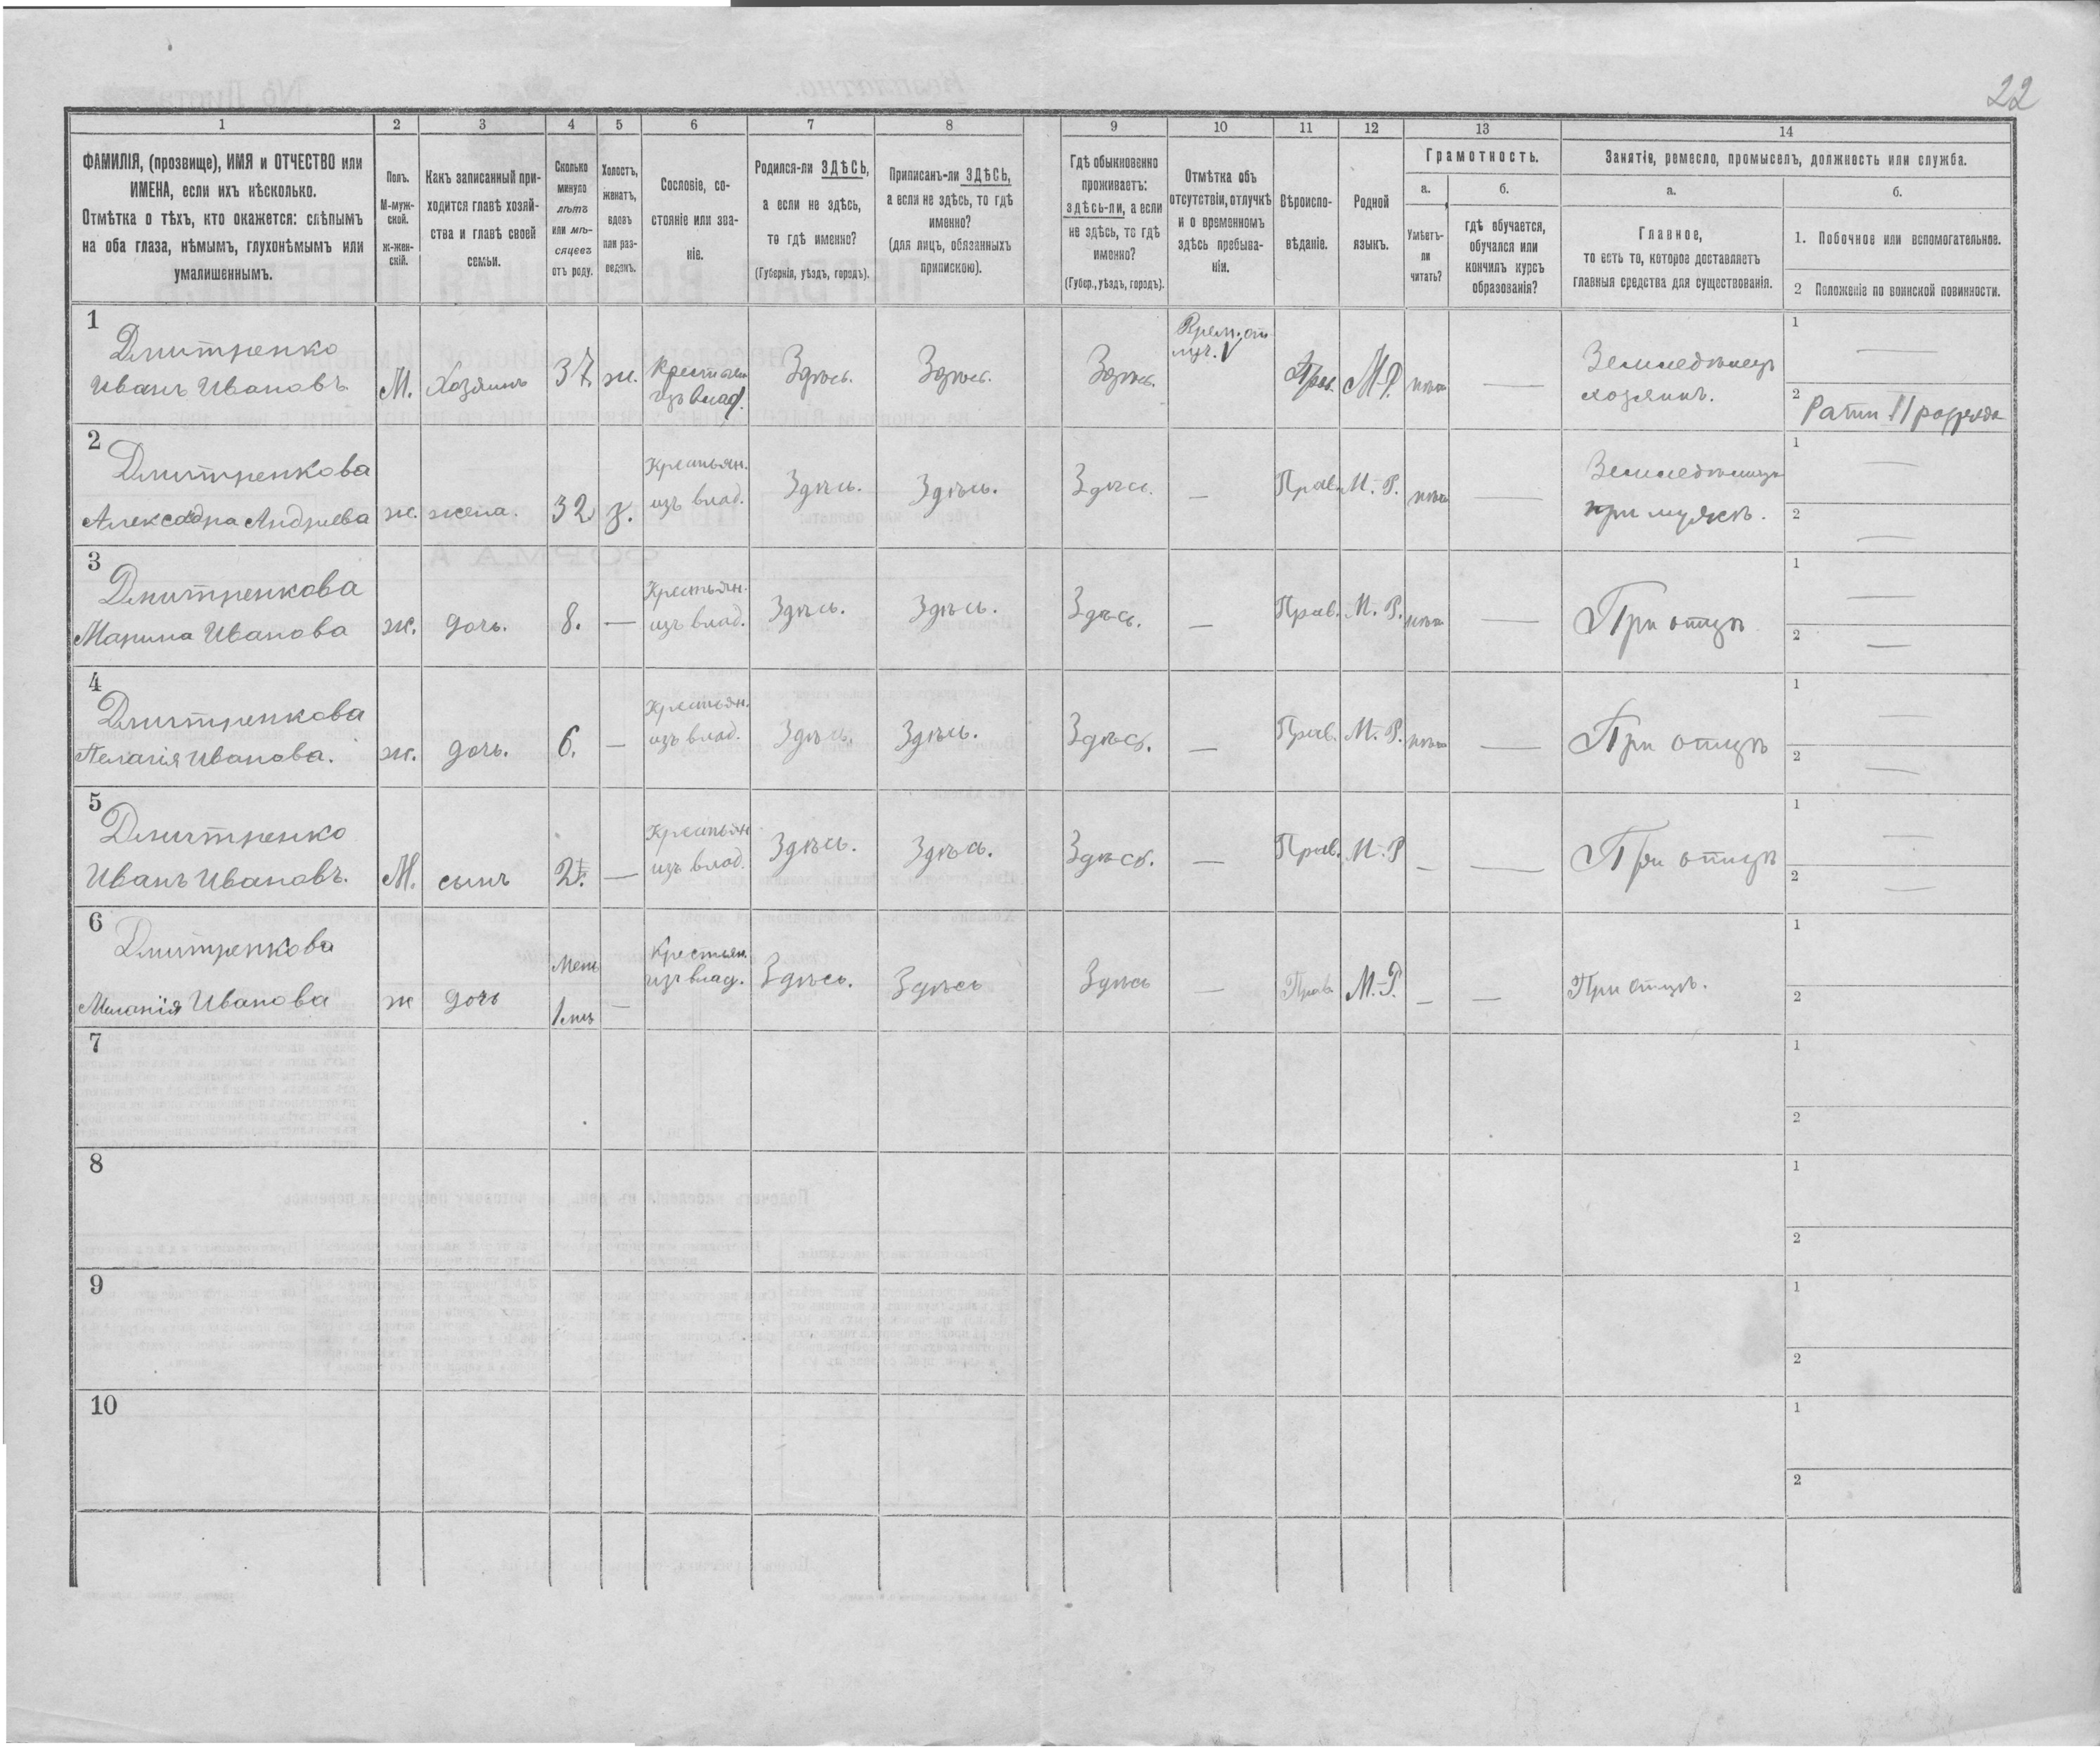 22
1 2 3 4 5 6 7 8 9 10 11 12 13 14
ФАМИЛІЯ, (прозвище), ИМЯ и ОТЧЕСТВО или
ИМЕНА, если ихъ нѣсколько.
Отмѣтка о тѣхъ, кто окажется: слѣпымъ
на оба глаза, нѣмымъ, глухонѣмымъ или
умалишеннымъ.
Полъ.
М-муж-
ской.
ж-жен-
скій.
Какъ записанный при-
ходится главѣ хозяй-
ства и главѣ своей
семьи.
Сколько
минуло
лѣтъ
или мѣ-
сяцевъ
отъ роду.
Холостъ,
женатъ,
вдовъ
или раз-
веденъ.
Сословіе, со-
стояніе или зва-
ніе.
Родился-ли ЗДѢСЬ,
а если не здѣсь,
то гдѣ именно?
(Губернія, уѣздъ, городъ).
Приписанъ-ли ЗДѢСЬ,
а если не здѣсь, то гдѣ
именно?
(для лицъ, обязанныхъ
припискою).
Гдѣ обыкновенно
проживаетъ:
здѣсь-ли, а если
не здѣсь, то гдѣ
именно?
(Губер., уѣздъ, городъ).
Отмѣтка объ
отсутствіи, отлучкѣ
и о временномъ
здѣсь пребыва-
ніи.
Вѣроиспо-
вѣданіе.
Родной
языкъ.
Грамотность.
а.
Умѣетъ-
ли
читать?
б.
гдѣ обучается,
обучался или
кончилъ курсъ
образованія?
Занятіе, ремесло, промыселъ, должность или служба.
а.
Главное,
то есть то, которое доставляетъ
главныя средства для существованія.
б.
1. Побочное или вспомогательное.
2 Положеніе по воинской повинности.
1 Дмитренко
Иванъ Ивановъ. М. Хозяинъ 37 ж. Крестьян
изъ влад. Здѣсь. Здѣсь. Здѣсь. Врем. от
луч. V Прав. М.Р. нѣт — Земледѣлецъ
хозяинъ. 1 —
2 Ратн II разряда
2 Дмитренкова
Александра Андреева ж. жена. 32 з. Крестьян.
изъ влад. Здѣсь. Здѣсь. Здѣсь. — Прав. М. Р. нѣт — Земледѣлецъ
при мужѣ. 1 —
2 —
3 Дмитренкова
Марина Иванова ж. дочь. 8. — Крестьян.
изъ влад. Здѣсь. Здѣсь. Здѣсь. — Прав. М. Р. нѣт — При отцѣ 1 —
2 —
4 Дмитренкова
Пелагія Иванова. ж. дочь. 6. — Крестьян.
изъ влад. Здѣсь. Здѣсь. Здѣсь. — Прав. М. Р. нѣт — При отцѣ 1 —
2 —
5 Дмитренко
Иванъ Ивановъ. М. сынъ 2 — Крестьян
изъ влад. Здѣсь. Здѣсь. Здѣсь. — Прав. М. Р — — При отцѣ 1 —
2 —
6 Дмитренкова
Меланія Иванова ж дочь Мен
1 мѣс — Крестьян.
изъ влад. Здѣсь. Здѣсь Здѣсь — Прав. М.-Р. — — При отцѣ. 1
2
7 1
2
8 1
2
9 1
2
10 1
2